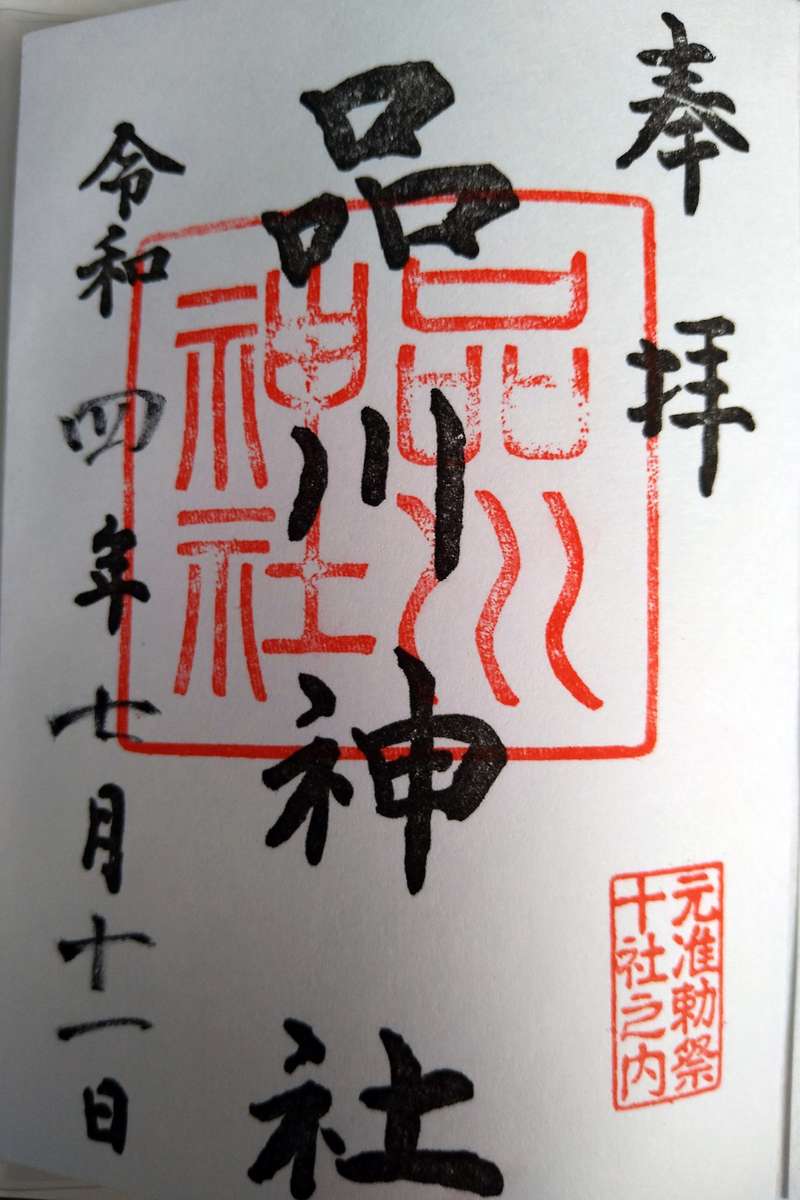 奉拝
品川神社
品川
神社
令和四年七月十一日
元准勅祭
十社之内